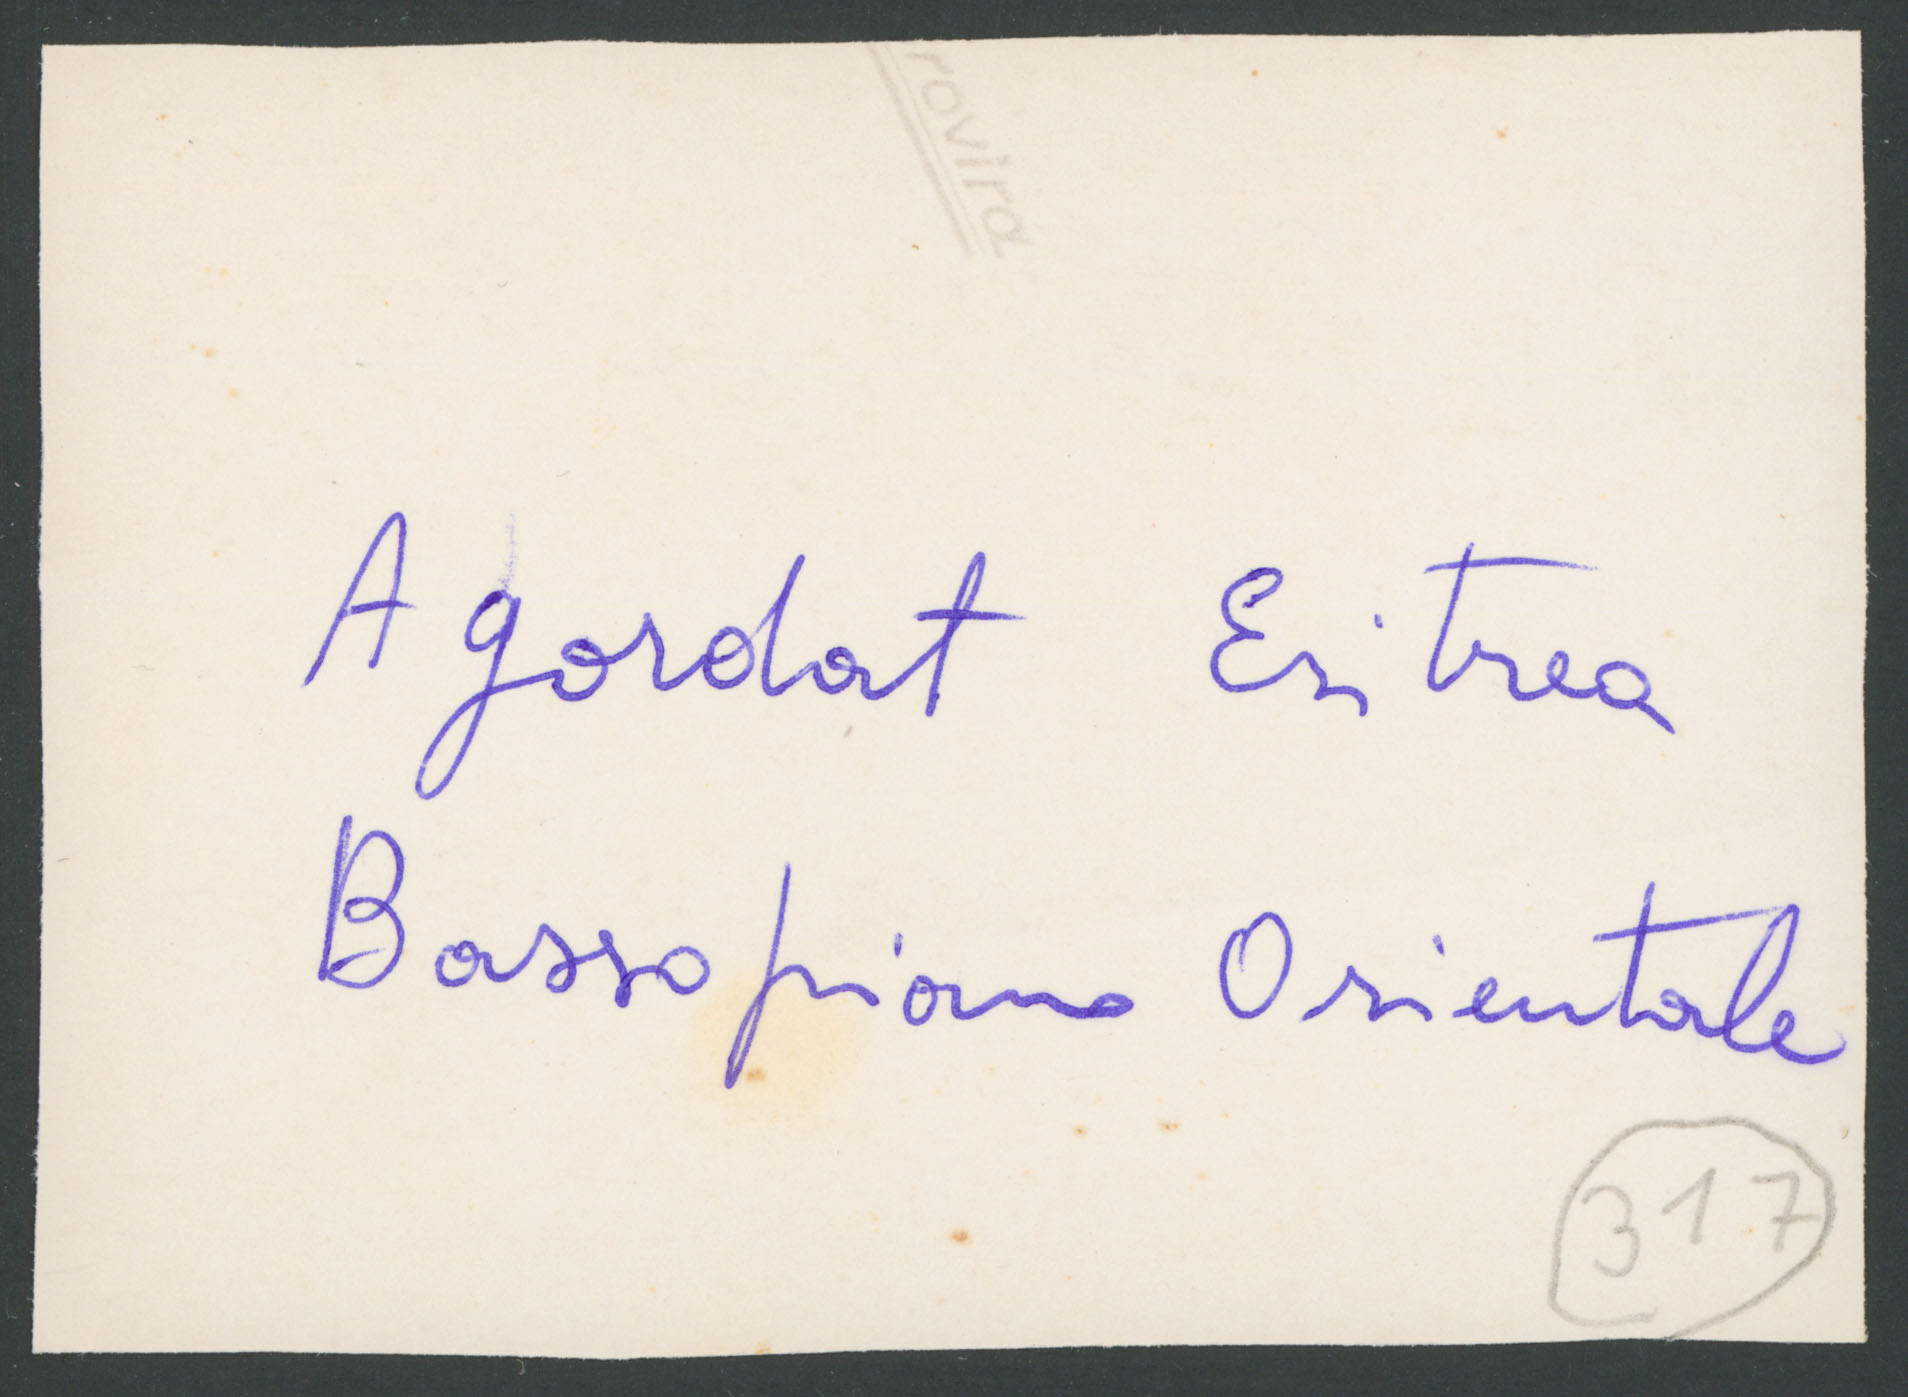 rovira
Agordat Eritrea
Bassopiano Orientale
317